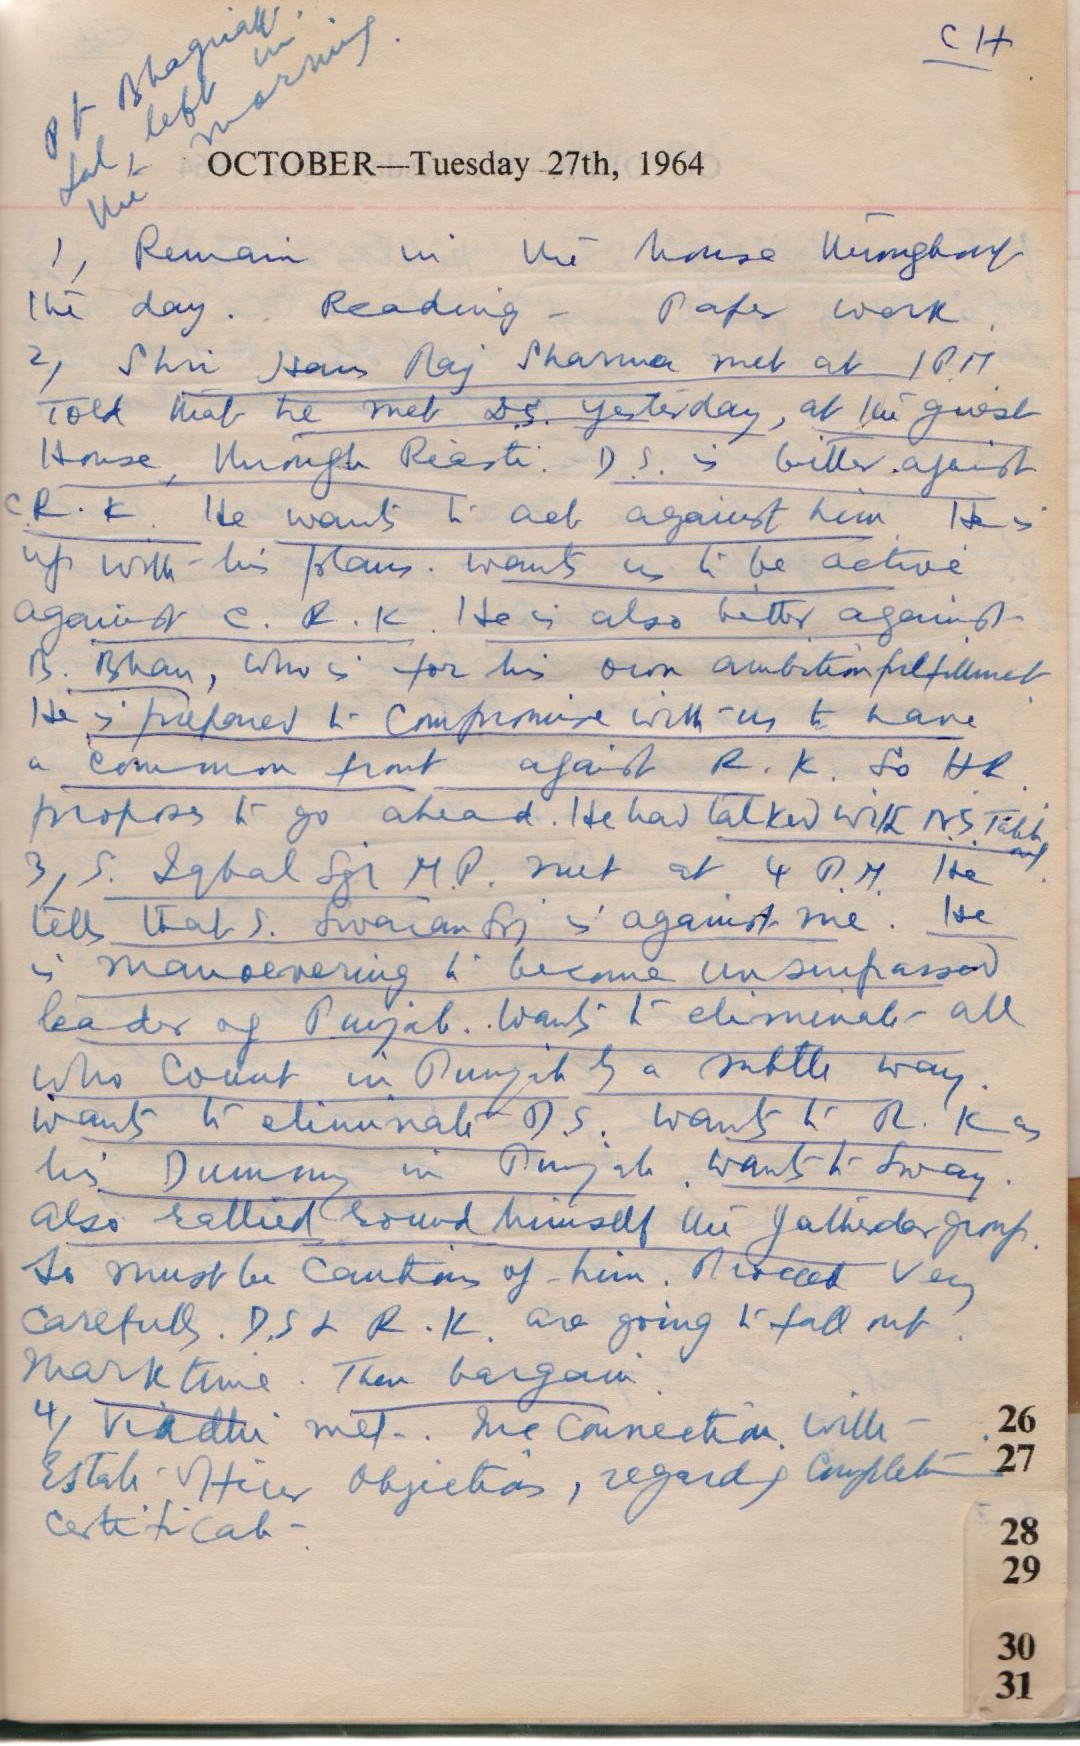 Pt Bhagirath
Lal, left in
the morning.
CH
OCTOBER—Tuesday 27th, 1964
1, Remain in the house throughout
the day. Reading - Paper work.
2, Shri Hans Raj Sharma met at 1 P.M
Told that he met D.S. yesterday, at the guest
House, through Riasti. D.S. is bitter against
C.R.K. He wants to act against him. He is
up with his plans. wants us to be active
against C.R.K. He is also bitter against
B. Bhan, who is for his own ambition fulfillment.
He is prepared to compromise with us to have
a common front against R.K. So HR.
proposes to go ahead. He had talked with N.S. Talib
3, S. Iqbal Sgh M.P. met at 4 P.M. He
tells that S. Swaran Sgh is against me. He
is manoevering to become unsurpassed
leader of Punjab. Wants to eliminate all
who count in Punjab by a subtle way.
Wants to eliminate D.S. Wants to R.K as
his Dummy in Punjab. wants to sway.
Also rallied round himself the group.
So must be cautious of him. Proceed very
carefully. D.S & R.K. are going to fall out.
Mark time. Then bargain.
4, met. In connection with
Estate Officer objections, regardg Completion
certificate -
26
27
28
29
30
31